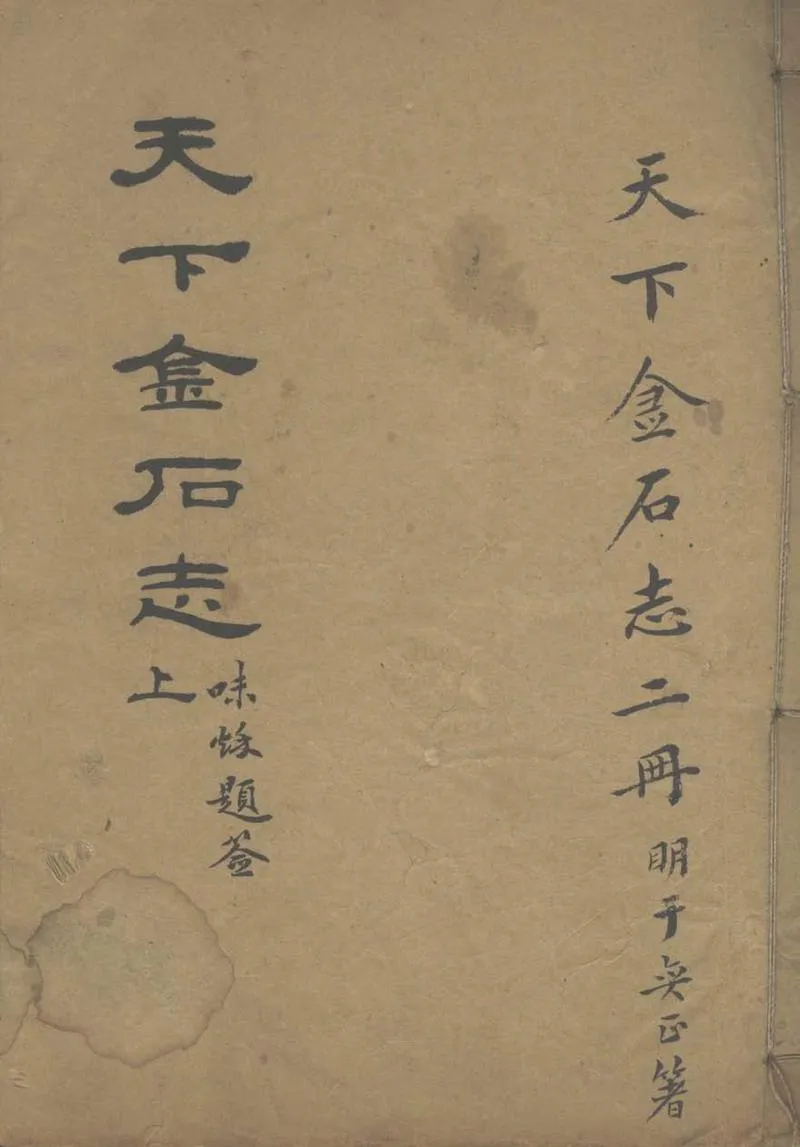 天下金石志二冊 明于奕正著
天下金石志 上
味 題簽